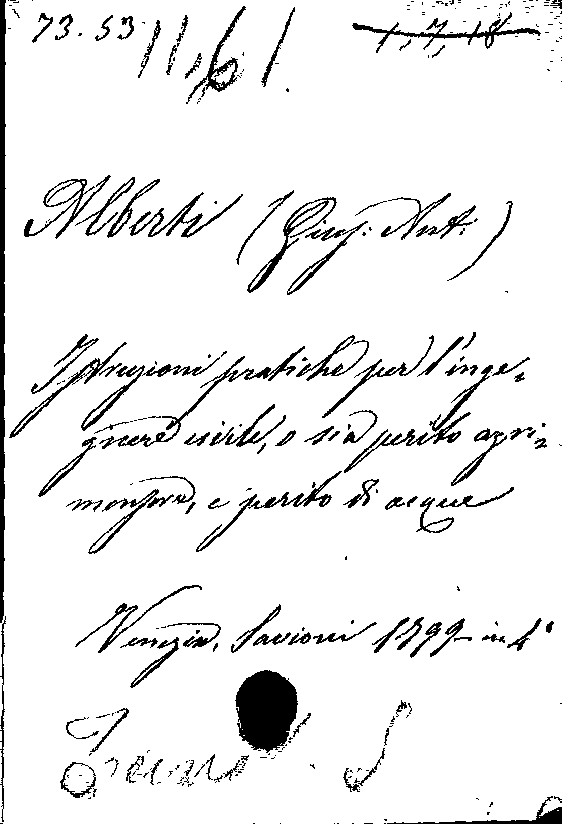 73.53 11,61
1, 7, 18
Alberti (Gius: Ant.)
Istruzioni pratiche per l'inge-
gnere civile, o sia perito agri-
mensore, e perito di acque
Venezia, Savioni 1799 in 4°